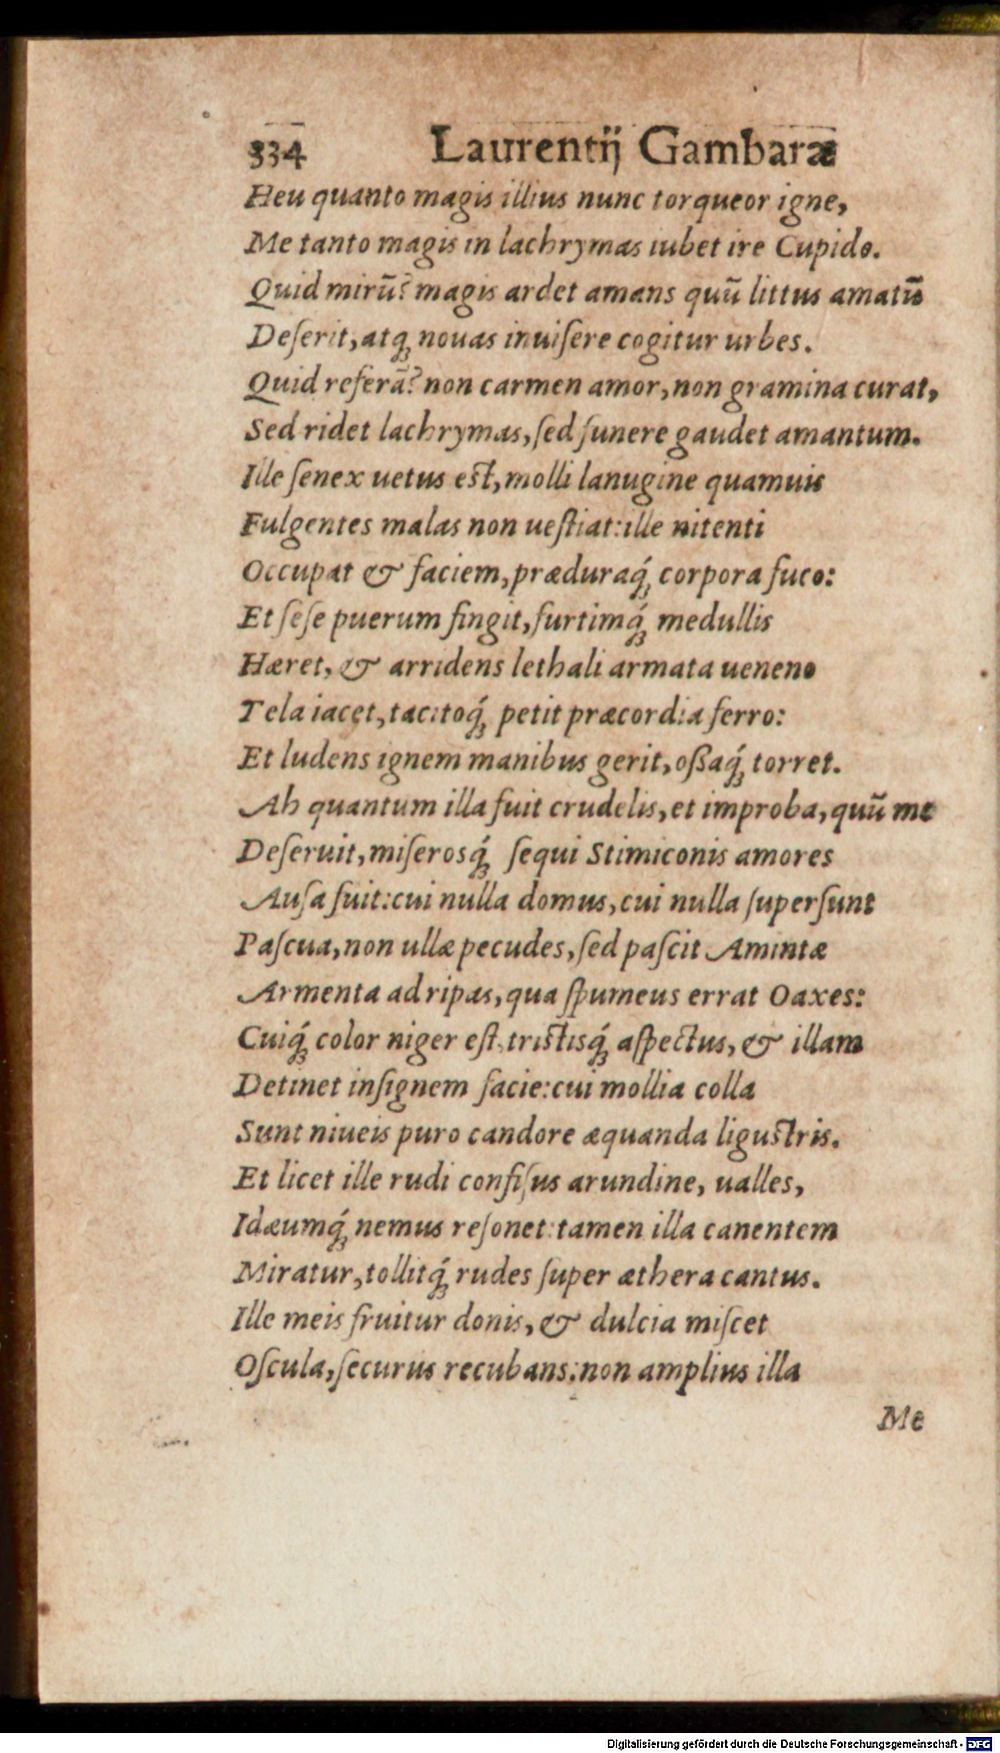 334 Laurentij Gambaræ
Heu quanto magis illius nunc torqueor igne,
Me tanto magis in lachrymas iubet ire Cupido.
Quid mirũ? magis ardet amans quũ littus amatũ
Deſerit, atq; nouas inuiſere cogitur urbes.
Quid referã? non carmen amor, non gramina curat,
Sed ridet lachrymas, ſed funere gaudet amantum.
Ille ſenex uetus eſt, molli lanugine quamuis
Fulgentes malas non ueſtiat: ille nitenti
Occupat & faciem, præduraq́; corpora fuco:
Et ſeſe puerum fingit, furtimq́; medullis
Hæret, & arridens lethali armata ueneno
Tela iacet, tacitoq́; petit præcordia ferro:
Et ludens ignem manibus gerit, oßaq́; torret.
Ah quantum illa fuit crudelis, et improba, quũ me
Deſeruit, miſerosq́; ſequi Stimiconis amores
Auſa fuit: cui nulla domus, cui nulla ſuperſunt
Paſcua, non ullæ pecudes, ſed paſcit Amintæ
Armenta ad ripas, qua ſpumeus errat Oaxes:
Cuiq́; color niger eſt, triſtisq́; aſpectus, & illam
Detinet inſignem facie: cui mollia colla
Sunt niueis puro candore æquanda liguſtris.
Et licet ille rudi confiſus arundine, ualles,
Idæumq́; nemus reſonet: tamen illa canentem
Miratur, tollitq́; rudes ſuper æthera cantus.
Ille meis fruitur donis, & dulcia miſcet
Oſcula, ſecurus recubans: non amplius illa
Me
Digitalisierung gefördert durch die Deutsche Forschungsgemeinschaft - DFG